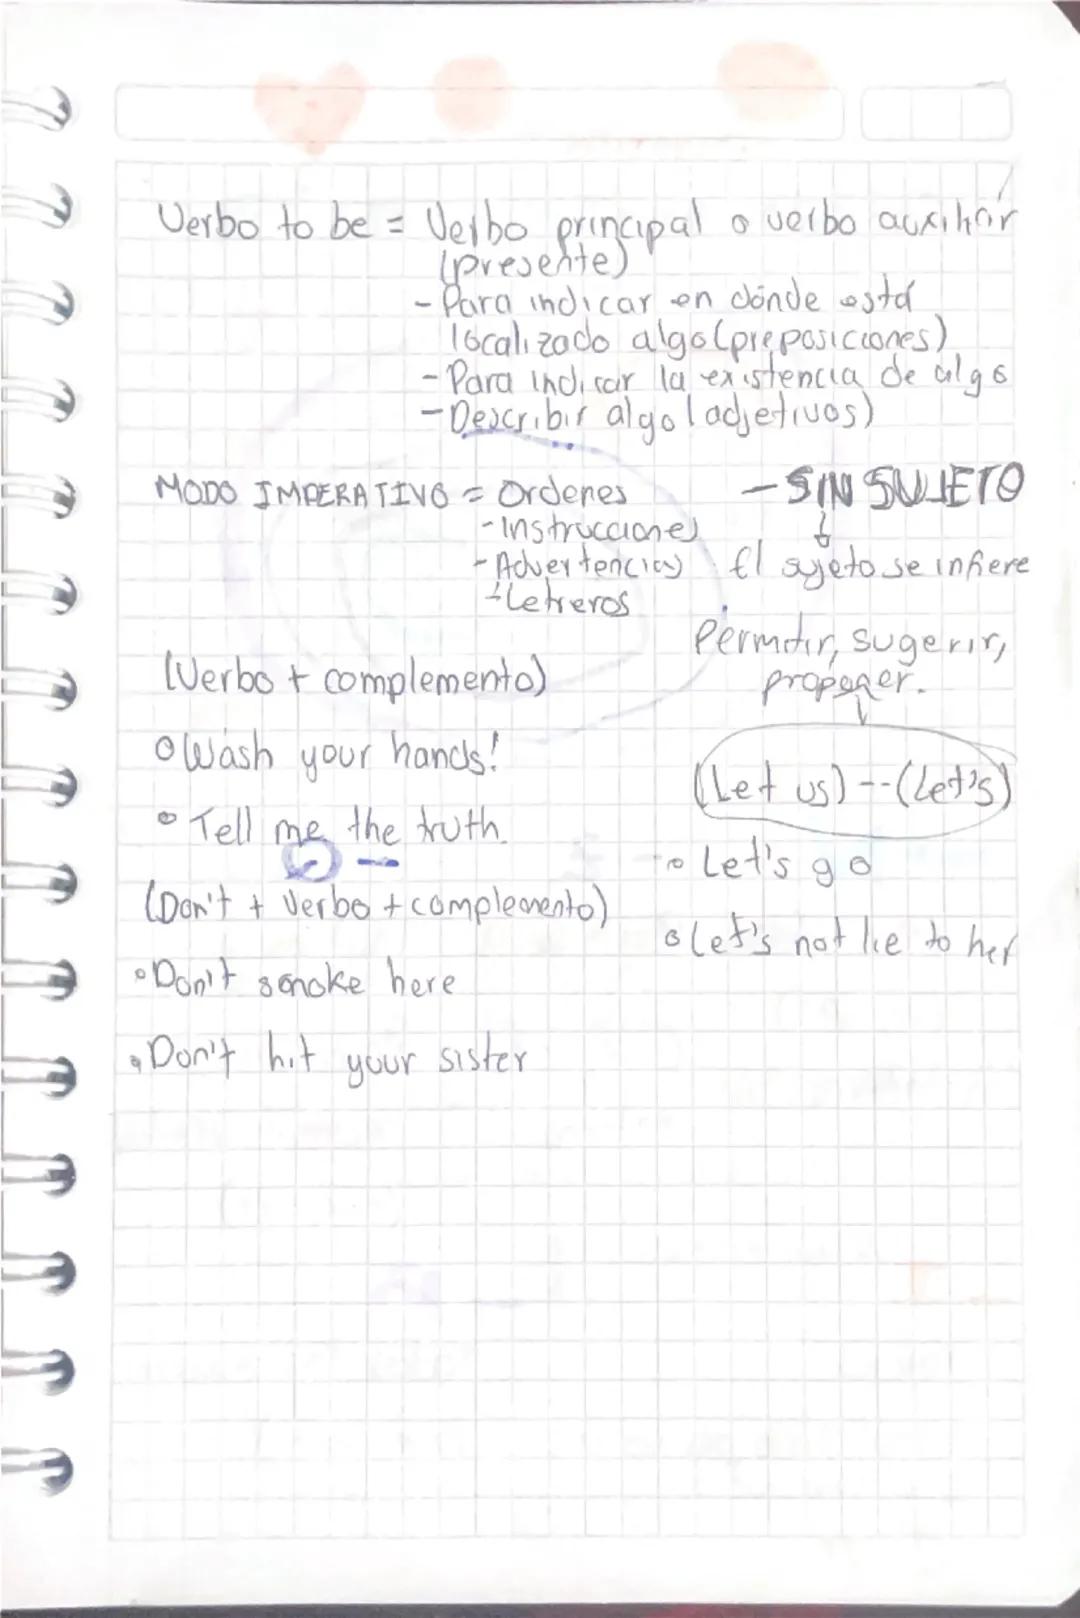 Verbo to be = Verbo principal o verbo auxiliar
(presente)
- Para indicar en dónde está
localizado algo (preposiciones)
- Para indicar la existencia de algo
- Describir algo (adjetivos)
MODO IMPERATIVO = Ordenes
- Instrucciones
- Advertencias
- Letreros
- SIN SUJETO
El sujeto se infiere
Permitir, sugerir,
proponer.
(Let us) -- (Let's)
• Let's go
• Let's not lie to her
(Verbo + complemento)
• Wash your hands!
• Tell me the truth.
(Don't + Verbo + complemento)
• Don't smoke here
• Don't hit your sister